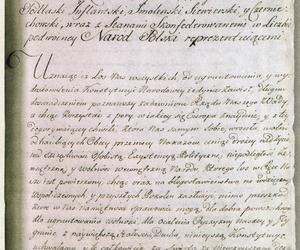 Podlaski Inflantski, Smolenski, Siewierski, y Czernie-
chowski, wraz z Stanami Skonfederowanemi w liczbie
podwoyney Narod Polski reprezentuiącemi
Uznaiąc, iż Los Nas wszystkich, od ugruntowania, y wy-
doskonalenia Konstytucyi Narodowey iedynie zawisł, długim
doswiadczeniem poznawszy zadawnione Rządu Naszego Wady,
a chcąc korzystać z pory, w iakiey się Europa znayduie, y z tey
dogorywaiącey chwili, która Nas samym Sobie wróciła, wolni
od hanbiących Obcey przemocy Nakazów, ceniąc drożey nad życie
nad szczęśliwość Osobistą, Exystencyą Polityczną, niepodległość ze-
wnętrzną, y wolność wewnętrzną Narodu, którego los w Ręce Nasze
iest powierzony, chcąc oraz na błogosławieństwo, na wdzięczność
współczesnych y przyszłych Pokoleń zasłużyć, mimo przeszkód,
które w Nas namiętności sprawować mogą, dla dobra powszechnego,
dla ugruntowania wolności, dla ocalenia Oyczyzny Naszey, y Jey
Granic, z naywiększą stałością Ducha, ninieyszą Konstytucyą
uchwalamy